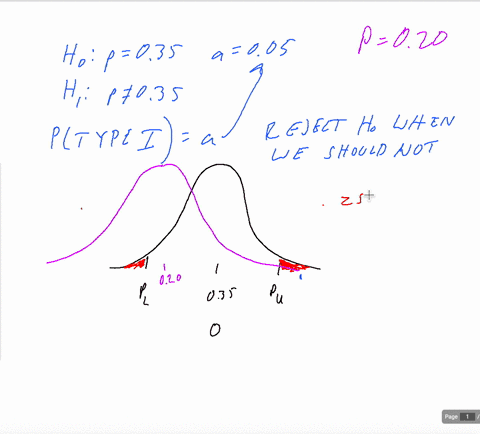 H₀: p = 0.35   a = 0.05   P = 0.20
H₁: p ≠ 0.35
P(TYPE I) = a
REJECT H₀ WHEN
WE SHOULD NOT
. 25
0.20
P_L   0.35   P_U
0
Page 1 /